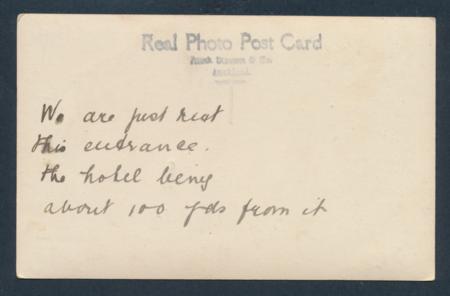 Real Photo Post Card
Frank Duncan & Co.
Auckland.
We are just next
this entrance.
the hotel being
about 100 yds from it